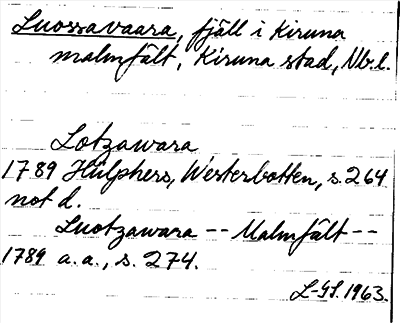 Luossavaara, fjäll i Kiruna
malmfält, Kiruna stad, Nb.l.
Lotzawara
1789 Hülphers, Westerbotten, s. 264
not d.
Luotzawara -- Malmfält --
1789 a.a., s. 274.
L-GL. 1963.